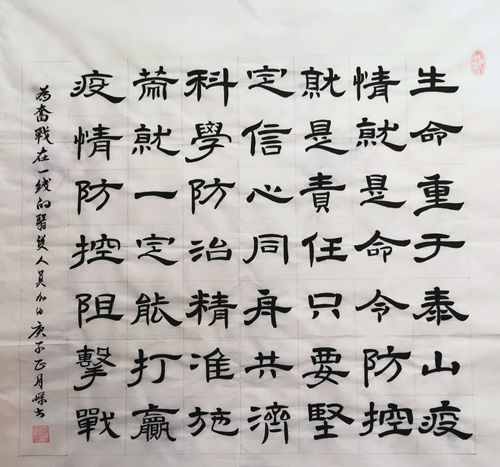 生命重于泰山疫
情就是命令防控
就是責任只要堅
定信心同舟共濟
科學防治精准施
策就一定能打贏
疫情防控阻擊戰
為奮戰在一线的醫護人員加油庚子正月书